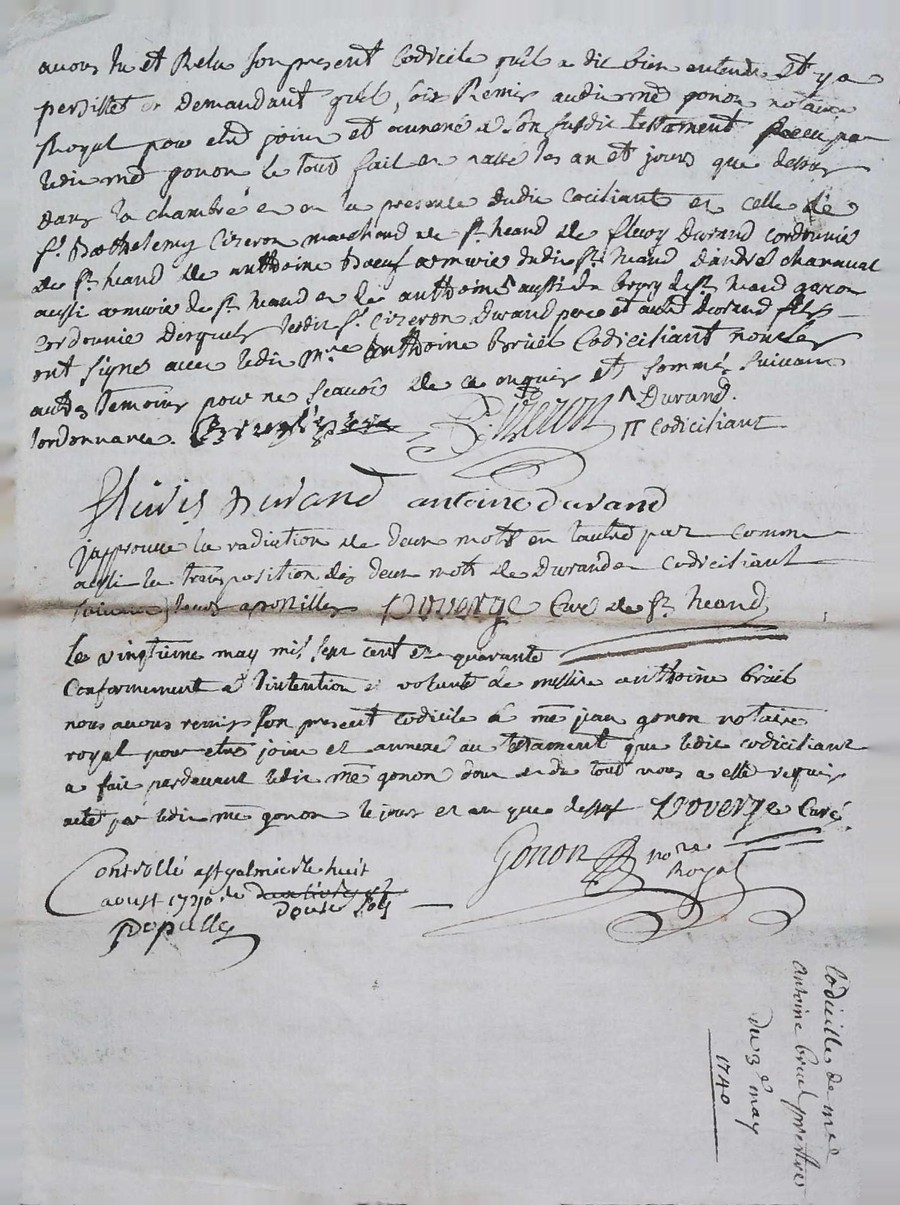 avons lu et Relu son present Codicile qu'il a dit bien entendre Et y a
persisté et Demandant qu'il soit Remis audit me gonon notaire
Royal pour etre joint et annexé a son susdit testament Receu par
ledit me gonon le tout fait en les an et jours que dessus
dans la chambre et en la presence dudit Codiciliant et celle de
sr Barthelemy Cizeron marchand de st heand de fleury Durand Cordonnie
de st heand de anthoine Boeuf armurie dudit st heand Dandré chanaval
aussi armurie de st heand et de anthoine aussi du bourg de st heand garcon
cordonnie Desquels lesdit sr Cizeron Durand pere et autre Durand fils
ont signes avec ledit Mre Anthoine Bruel Codiciliant non les
autres temoins pour ne scavoir de ce enquis et sommés suivant
lordonnance.
Cizeron ^ Durand.
π Codiciliant
fleuris Durand antoine durand
japprouve la radiation de deux mots en lautre par comme
aussi la transposition des deux mots de Durand et codiciliant
suivant leurs apostilles Doverge Curé de st heand
Le vingtieme may mil sept cent et quarante
Conformement a l'intention et volonté de messire anthoine bruel
nous avons remis son present codicile a me jean gonon notaire
royal pour etre joint et annexé au testament que ledit codiciliant
a fait pardevant ledit me gonon dont et du tout nous a esté requis
acte par ledit me gonon le jour et an que dessus Doverge Curé
Gonon nore
Royal
Controllé a st galmier le huit
aoust 1740 deux livres
Douze sols
Populle
Codicille de mre
Antoine bruel prestre
du 3e may
1740